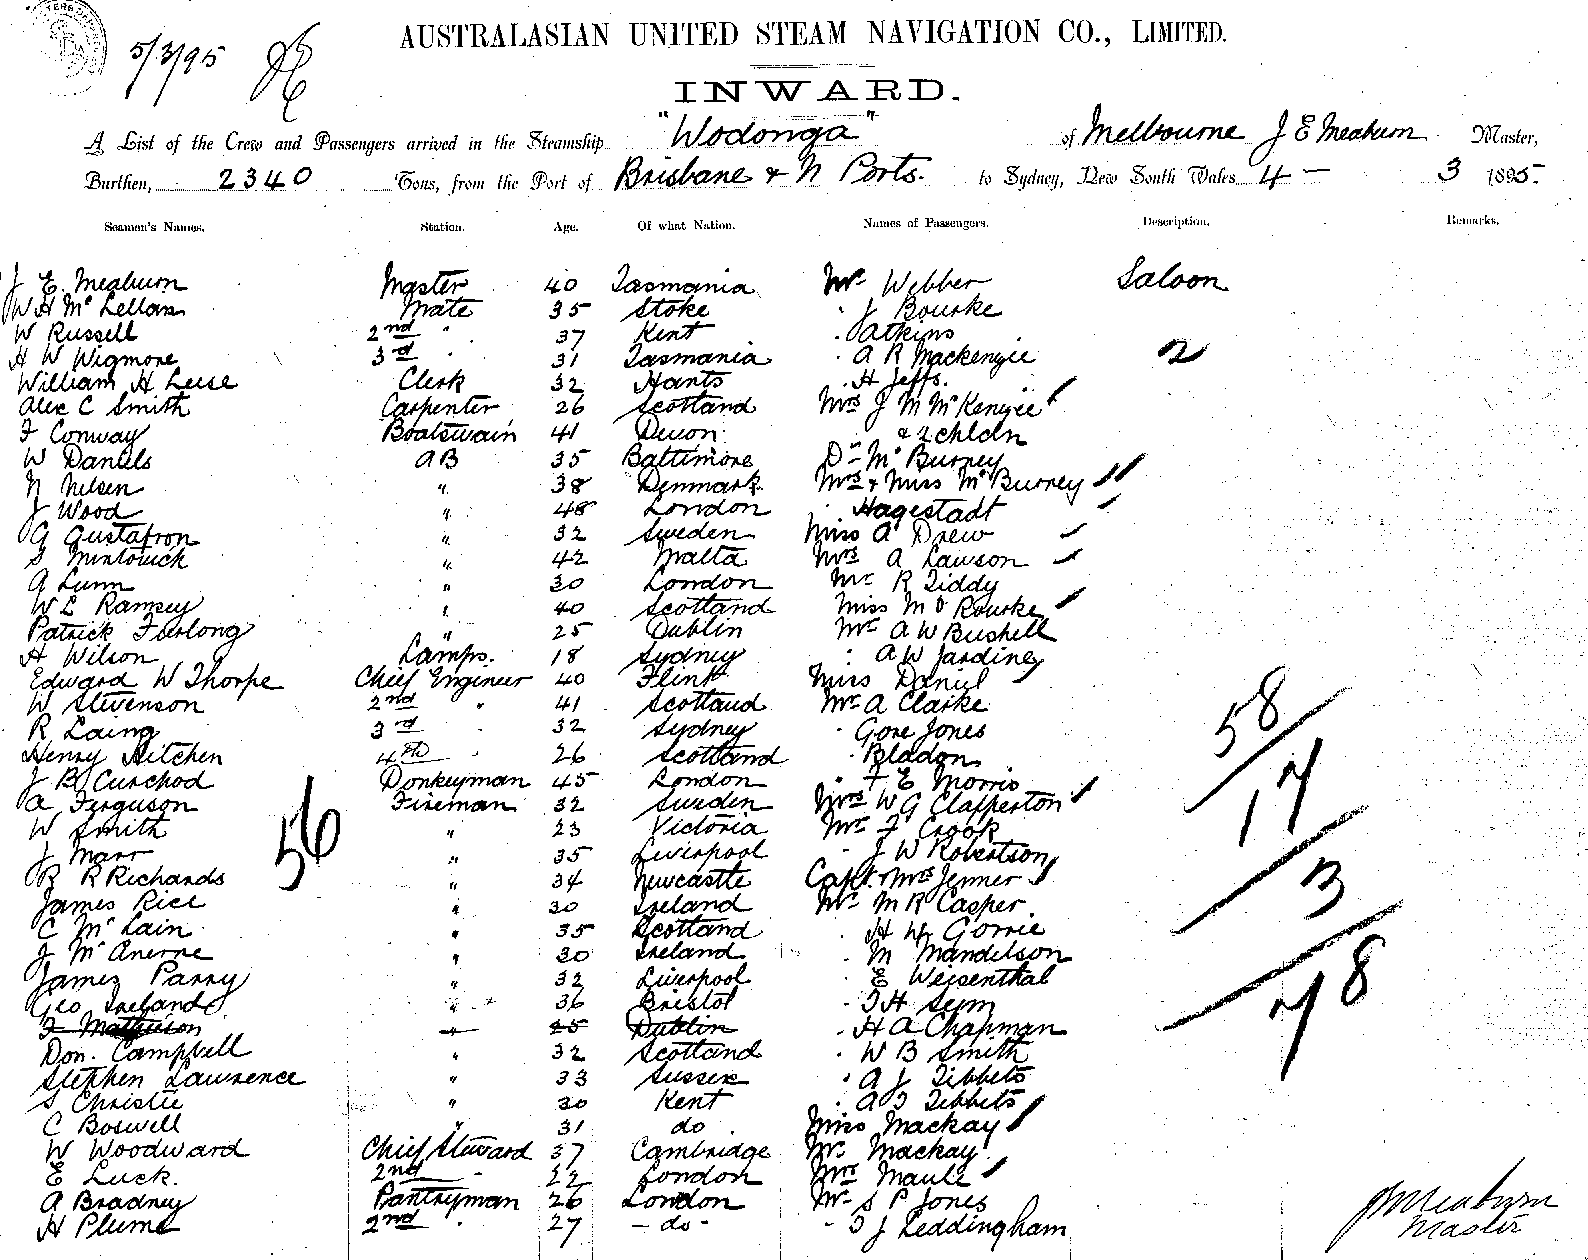 5/3/95
AUSTRALASIAN UNITED STEAM NAVIGATION CO., LIMITED.
INWARD.
A List of the Crew and Passengers arrived in the Steamship "Wodonga" of Melbourne J E Meaburn Master,
Burthen, 2340 Tons, from the Port of Brisbane & N Ports. to Sydney, New South Wales 4 - 3 1895.
Seamen's Names. Station. Age. Of what Nation. Names of Passengers. Description. Remarks.
J E. Meaburn Master 40 Tasmania Mr Webber Saloon
W H Mc Lellan Mate 35 Stoke " J Bourke
W Russell 2nd " 37 Kent " Atkins
H W Wigmore 3rd " 31 Tasmania " A R Mackenzie 2
William H Luse Clerk 32 Hants " H Jeffs.
Alex C Smith Carpenter 26 Scotland Mrs J M McKenzie
F Conway Boatswain 41 Devon & 2 chldn
W Daniels AB 35 Baltimore Dr Mc Burney
N Nelsen " 38 Denmark Mrs & Miss Mc Burney
J Wood " 48 London " Hagestadt
G Gustafron " 32 Sweden Miss A Drew
S Mintowick " 42 Malta Mrs A Lawson
A Lunn " 30 London Mr R Tiddy
W L Ramsey " 40 Scotland Miss M O Rourke
Patrick Furlong " 25 Dublin Mr A W Bushell
H Wilson Lamps. 18 Sydney " A W Jardine
Edward W Thorpe Chief Engineer 40 Flint Miss Daniel
W Stevenson 2nd " 41 Scotland Mr A Clarke
R Laing 3rd 32 Sydney " Gore Jones
Henry Aitchen 4th " 26 Scotland " Bladon
J B Curchod Donkeyman 45 London " F E Morris
A Ferguson Fireman 32 Sweden Mrs W G Clapperton
W Smith " 23 Victoria Mr F Crook
J Marr " 35 Liverpool " J W Robertson
R R Richards " 34 Newcastle Capt & Mrs Jenner
James Rice " 30 Ireland Mr M R Casper.
C Mc Lain " 35 Scotland " H W Gorrie
J Mc Anerne " 30 Ireland " M Mandelson
James Parry " 32 Liverpool " E Weisenthal
Geo Ireland " 36 Bristol " T H Seym
F Mathieson " 25 Dublin " H A Chapman
Don. Campbell " 32 Scotland " W B Smith
Stephen Lawrence " 33 Sussex " A J Tibbets
S Christie " 30 Kent " A T Tibbets
C Boswell " 31 do Miss Mackay
W Woodward Chief Steward 37 Cambridge Mr Mackay
E Luck. 2nd " 22 London Mrs Maule
A Bradney Pantryman 26 London Mr S P Jones
H Plume 2nd " 27 - do - " T J Leddingham
56
58
17
3
78
J E Meaburn
Master